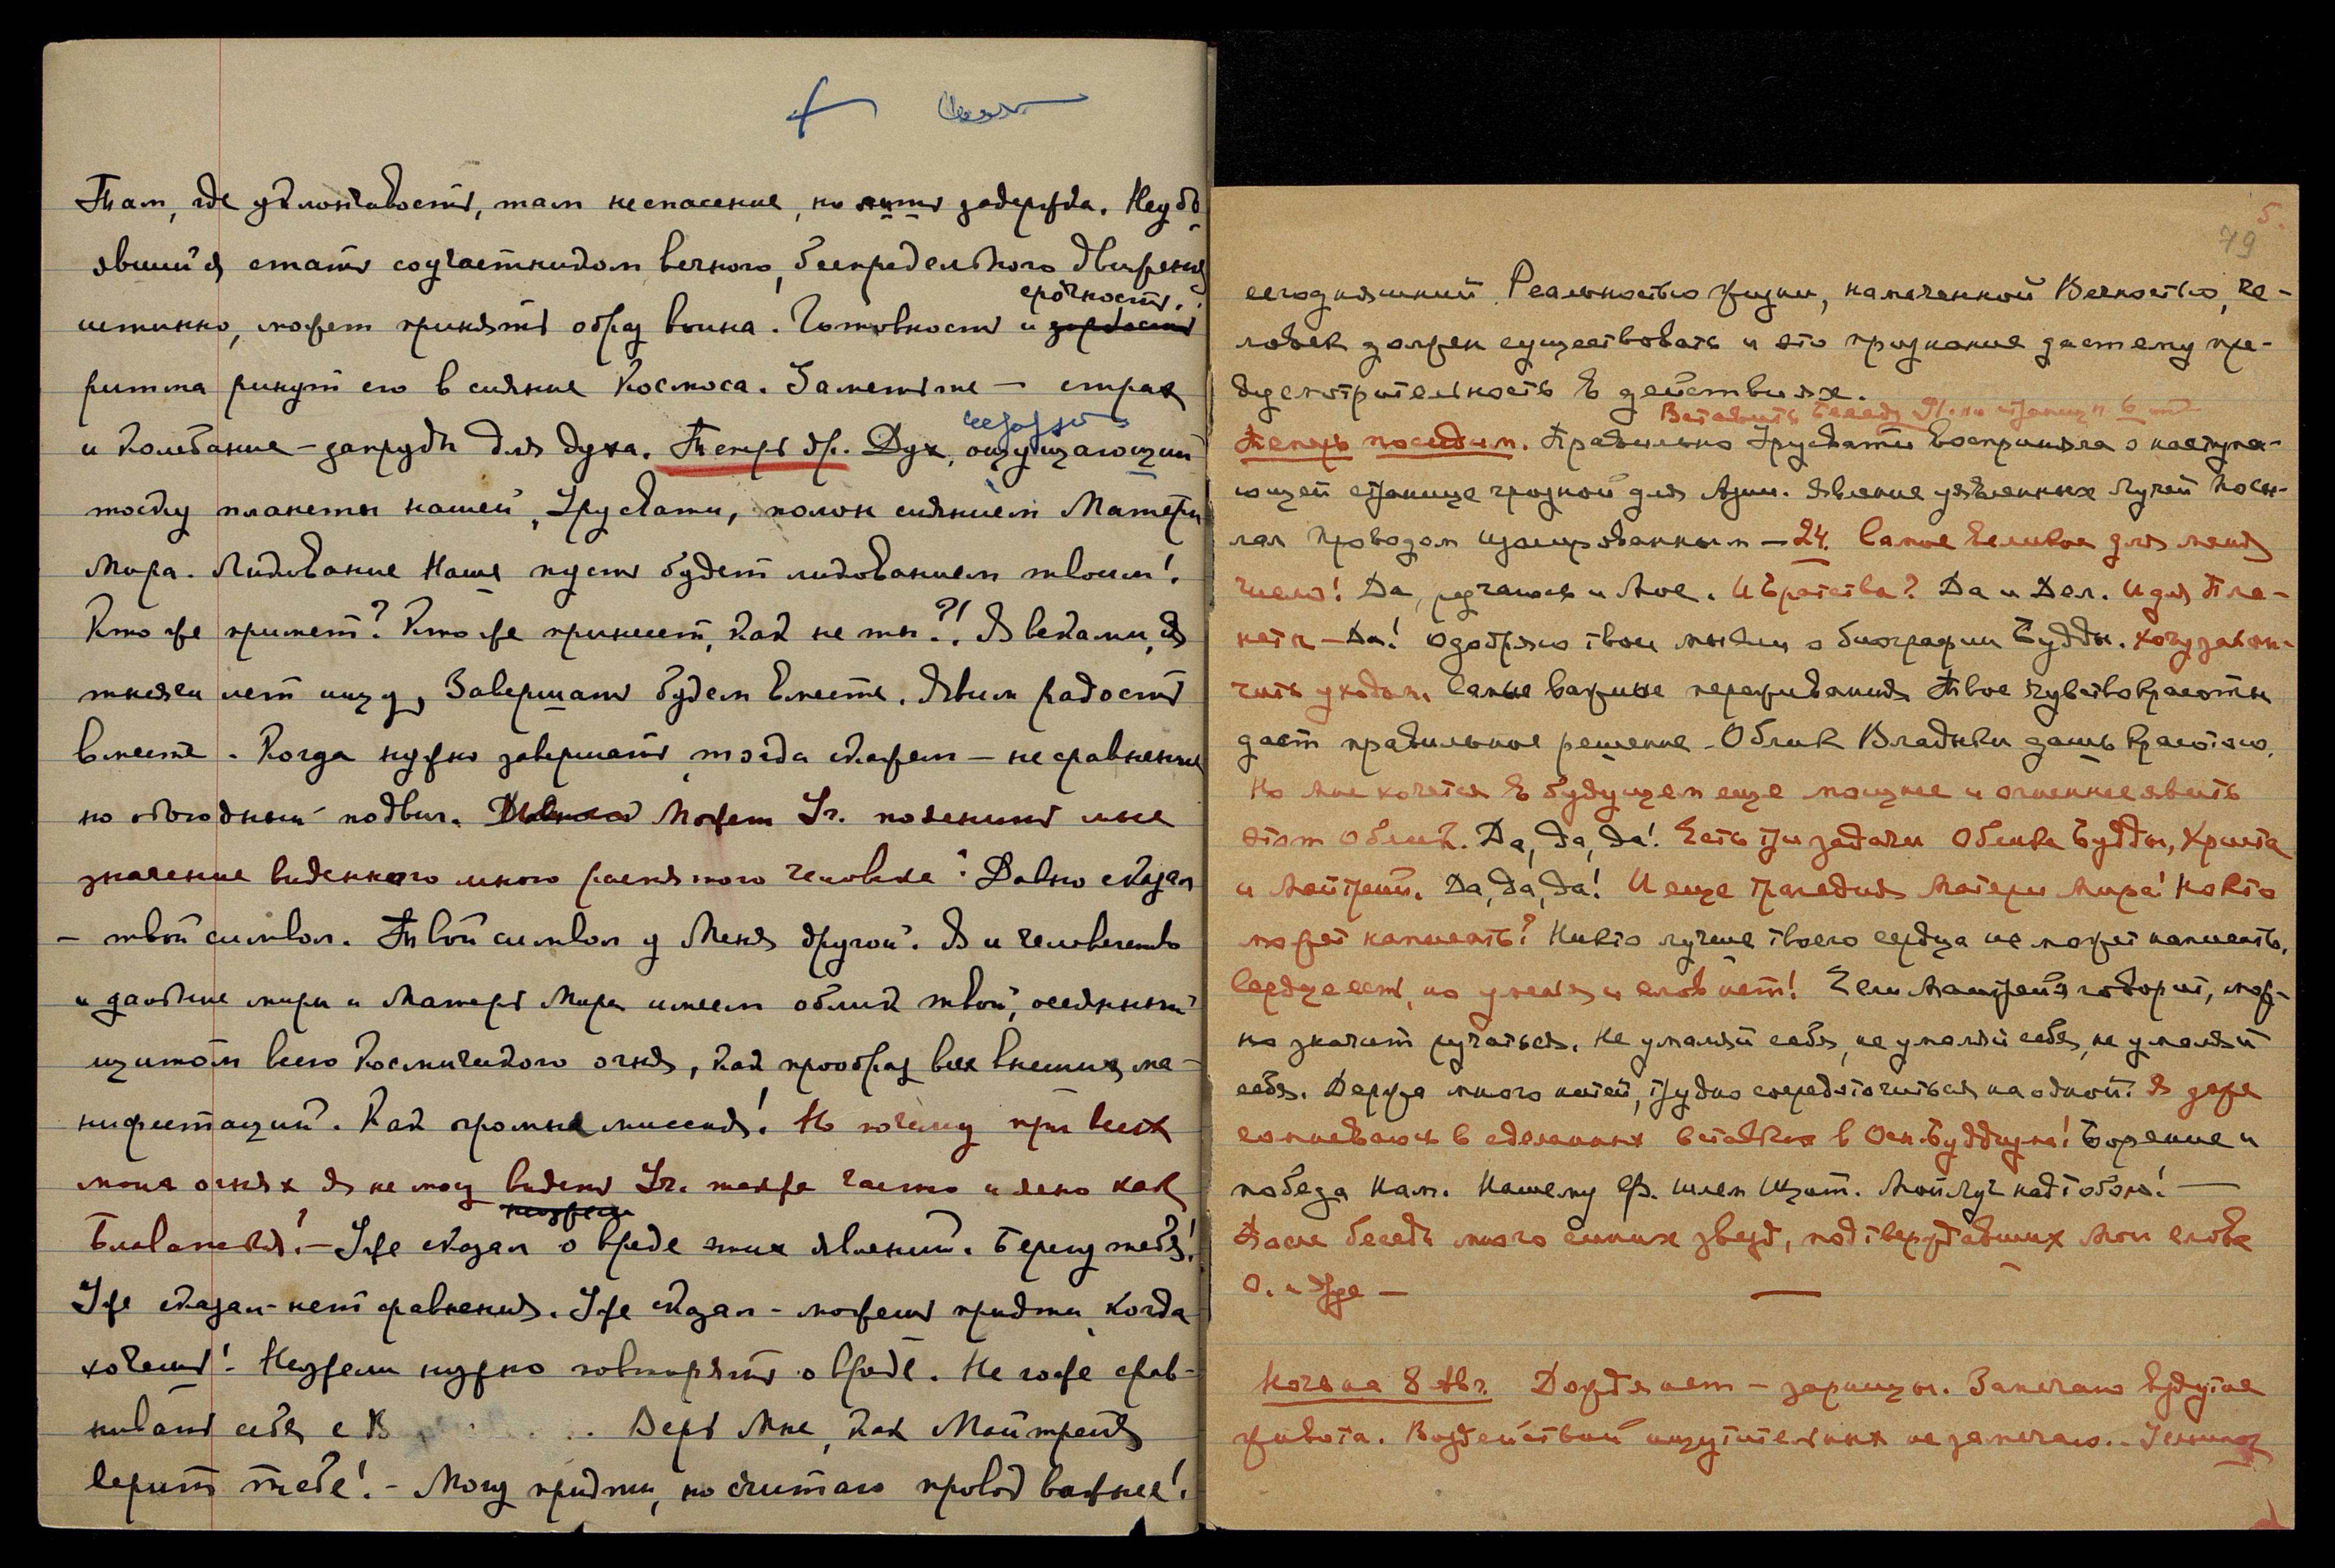 Там, где уклончивость, там не спасение, но лишь задержка. Неубо
явшийся стать соучастником вечного, беспредельного движения
срочность.
истинно, может принять образ воина. Готовность и зоркость
ритма ринут его в сияние Космоса. Заметьте — страх
и колебание — запруды для духа. Теперь др. Дух, ощущающий
тоску планеты нашей, Урусвати, полон сиянием Матери
Мира. Ликование Наше пусть будет ликованием твоим!
Кто же примет? Кто же принесет, как не ты?! Я веками, я
тысячи лет ищу, Завершать будем вместе. Явим радость
вместе. Когда нужно завершать, тогда скажем — не сравнение
но обоюдный подвиг. Может Уч. пояснить мне
значение виденного мною распятого человека? Давно сказал
— твой символ. Твой символ у Меня другой. Я и человечество
и дальние миры и Матерь Мира имеем облик твой, осеянный
щитом всего Космического огня, как прообраз всех внешних ма-
нифестаций. Как огромна миссия! Но почему при всех
моих огнях я не могу видеть Уч. также часто и ясно как
неужели
Блаватская? — Уже сказал о вреде этих явлений. Берегу тебя!
Уже сказал — нет сравнения. Уже сказал — можешь придти, когда
хочешь! Неужели нужно повторять о вреде. Не гоже срав-
нивать себя с В Верь Мне, как Майтрейя
верит тебе! — Могу придти, но считаю провод важнее!
5.
79
сегодняшний. Реальностью жизни, намеченной Вечностью, че-
ловек должен существовать и это признание даст ему пре-
дусмотрительность в действиях.
Вставить беседу 
Теперь последим. Правильно Урусвати восприняла о наступа-
ющей странице грозной для Азии. Явление уявленных Лучей посы-
лал проводом изолированным — 24. Самое великое для меня
число! Да, ручаюсь и Мое. И Братства? Да и Дел. И для Пла-
неты — Да! Одобряю твои мысли о биографии Будды. Хочу закон-
чить уходом. Самые важные переживания. Твое чувство красоты
даст правильное решение. Облик Владыки дашь красотою.
Но мне хочется в будущем еще мощнее и огненнее явить
этот Облик. Да, да, да! Есть три задачи Облика Будды, Христа
и Майтрейи. Да, да, да! И еще трагедия Матери Мира! Но кто
может написать? Никто лучше твоего сердца не может написать.
Сердце есть, но уменья и слов нет! Если Майтрейя говорит, мож-
но значит ручаться. Не умаляй себя, не умаляй себя, не умаляй
себя. Держа много нитей, трудно сосредоточиться на одной. Я даже
сомневаюсь в сделанных вставках в Осн. Буддизма! Борение и
победа Нам. Нашему Ф. шлем Щит. Мой Луч над тобою! —
После беседы много синих звезд, подтверждавших Мои слова
О. и Уде —
Ночь на 8 Авг. Дождя нет — зарницы. Замечаю вздутие
живота. Воздействий ощутительных не замечаю..